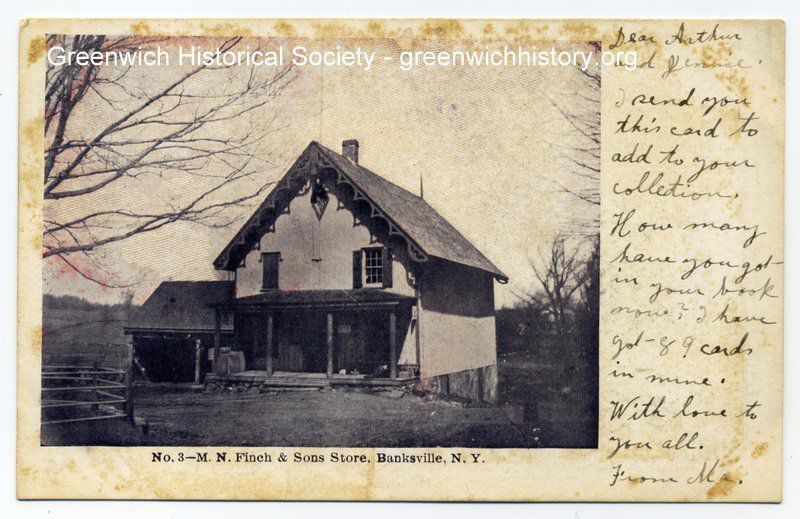 Greenwich Historical Society - greenwichhistory.org
Dear Arthur
and Jennie.
I send you
this card to
add to your
collection.
How many
have you got
in your book
now? I have
got 89 cards
in mine.
With love to
you all.
From Ma.
No. 3—M. N. Finch & Sons Store, Banksville, N. Y.